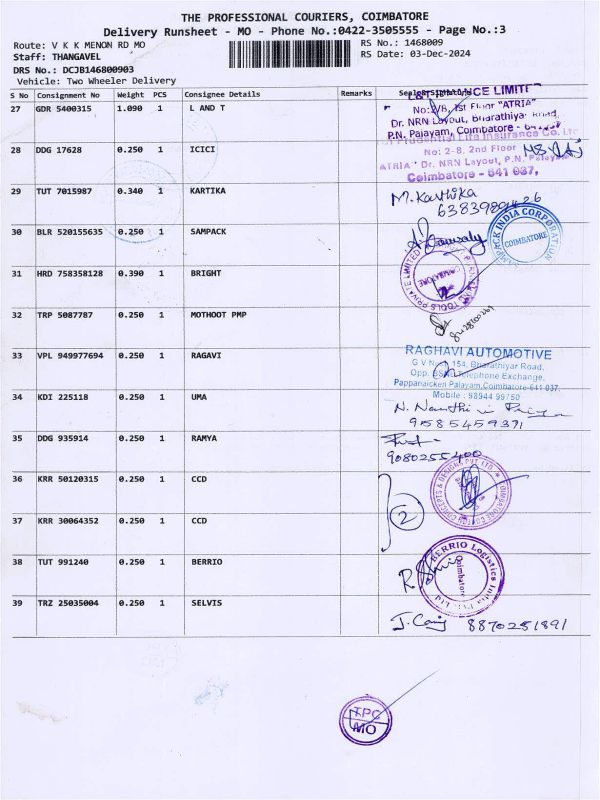 THE PROFESSIONAL COURIERS, COIMBATORE
Delivery Runsheet - MO - Phone No.:0422-3505555 - Page No.:3
Route: V K K MENON RD MO
RS No.: 1468009
Staff: THANGAVEL
RS Date: 03-Dec-2024
DRS No.: DCJB146800903
Vehicle: Two Wheeler Delivery
S No Consignment No Weight PCS Consignee Details Remarks
27 GDR 5400315 1.090 1 L AND T
1st Floor "ATRIA"
Dr. NRN Layout, Bharathiyar Road,
P.N. Palayam, Coimbatore -
28 DDG 17628 0.250 1 ICICI
Prudential Life Insurance Co. Ltd
No: 2-8, 2nd Floor
ATRIA" Dr. NRN Layout, P.N. Palayam
Coimbatore - 641 037,
29 TUT 7015987 0.340 1 KARTIKA
M. Karthika
30 BLR 520155635 0.250 1 SAMPACK
SAMPACK INDIA CORPORATION
COIMBATORE
31 HRD 758358128 0.390 1 BRIGHT
TOOLS PRIVATE LIMITED
COIMBATORE
32 TRP 5087787 0.250 1 MOTHOOT PMP
33 VPL 949977694 0.250 1 RAGAVI
RAGHAVI AUTOMOTIVE
G V 154, Bharathiyar Road,
Opp. BSNL Telephone Exchange,
Pappanaicken Palayam, Coimbatore-641 037.
Mobile : 98944 99750
34 KDI 225118 0.250 1 UMA
N. Nandhini Priya
9585459371
35 DDG 935914 0.250 1 RAMYA
9080255400
36 KRR 50120315 0.250 1 CCD
CONCEPTS & DESIGNS PVT. LTD.
2
37 KRR 30064352 0.250 1 CCD
38 TUT 991240 0.250 1 BERRIO
BERRIO Logistics India Pvt. Ltd
Coimbatore
39 TRZ 25035004 0.250 1 SELVIS
8870251891
TPC
MO